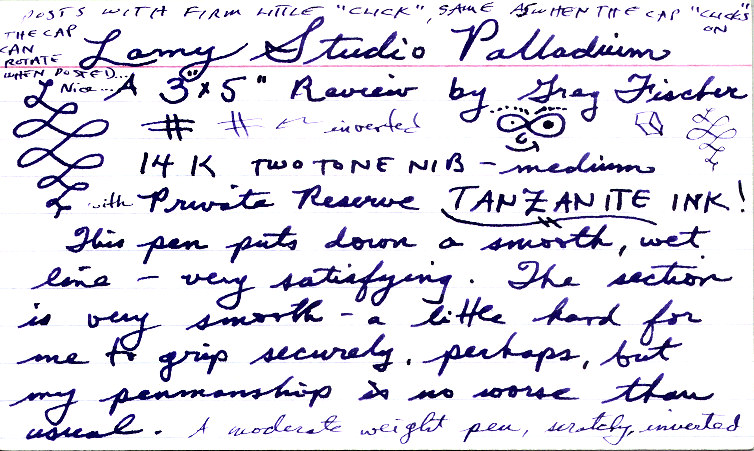 POSTS WITH FIRM LITTLE "CLICK", SAME AS WHEN THE CAP "CLICKS" ON
THE CAP CAN ROTATE WHEN POSTED... Nice...
Lamy Studio Palladium
A 3" x 5" Review by Greg Fischer
# # inverted
14 K TWO TONE NIB – medium
with Private Reserve TANZANITE INK!
This pen puts down a smooth, wet
line – very satisfying. The section
is very smooth – a little hard for
me to grip securely, perhaps, but
my penmanship is no worse than
usual. A moderate weight pen, scratchy, inverted